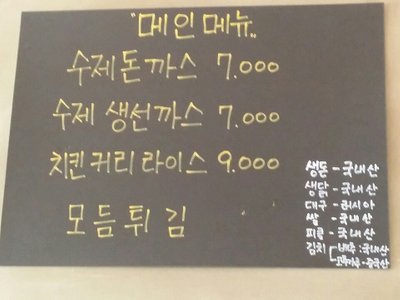 "메인메뉴"
수제돈까스 7.000
수제 생선까스 7.000
치킨커리라이스 9.000
모듬튀김
생돈 - 국내산
생닭 - 국내산
대구 - 러시아
쌀 - 국내산
피클 - 국내산
김치 배추 : 국내산
고춧가루 - 중국산